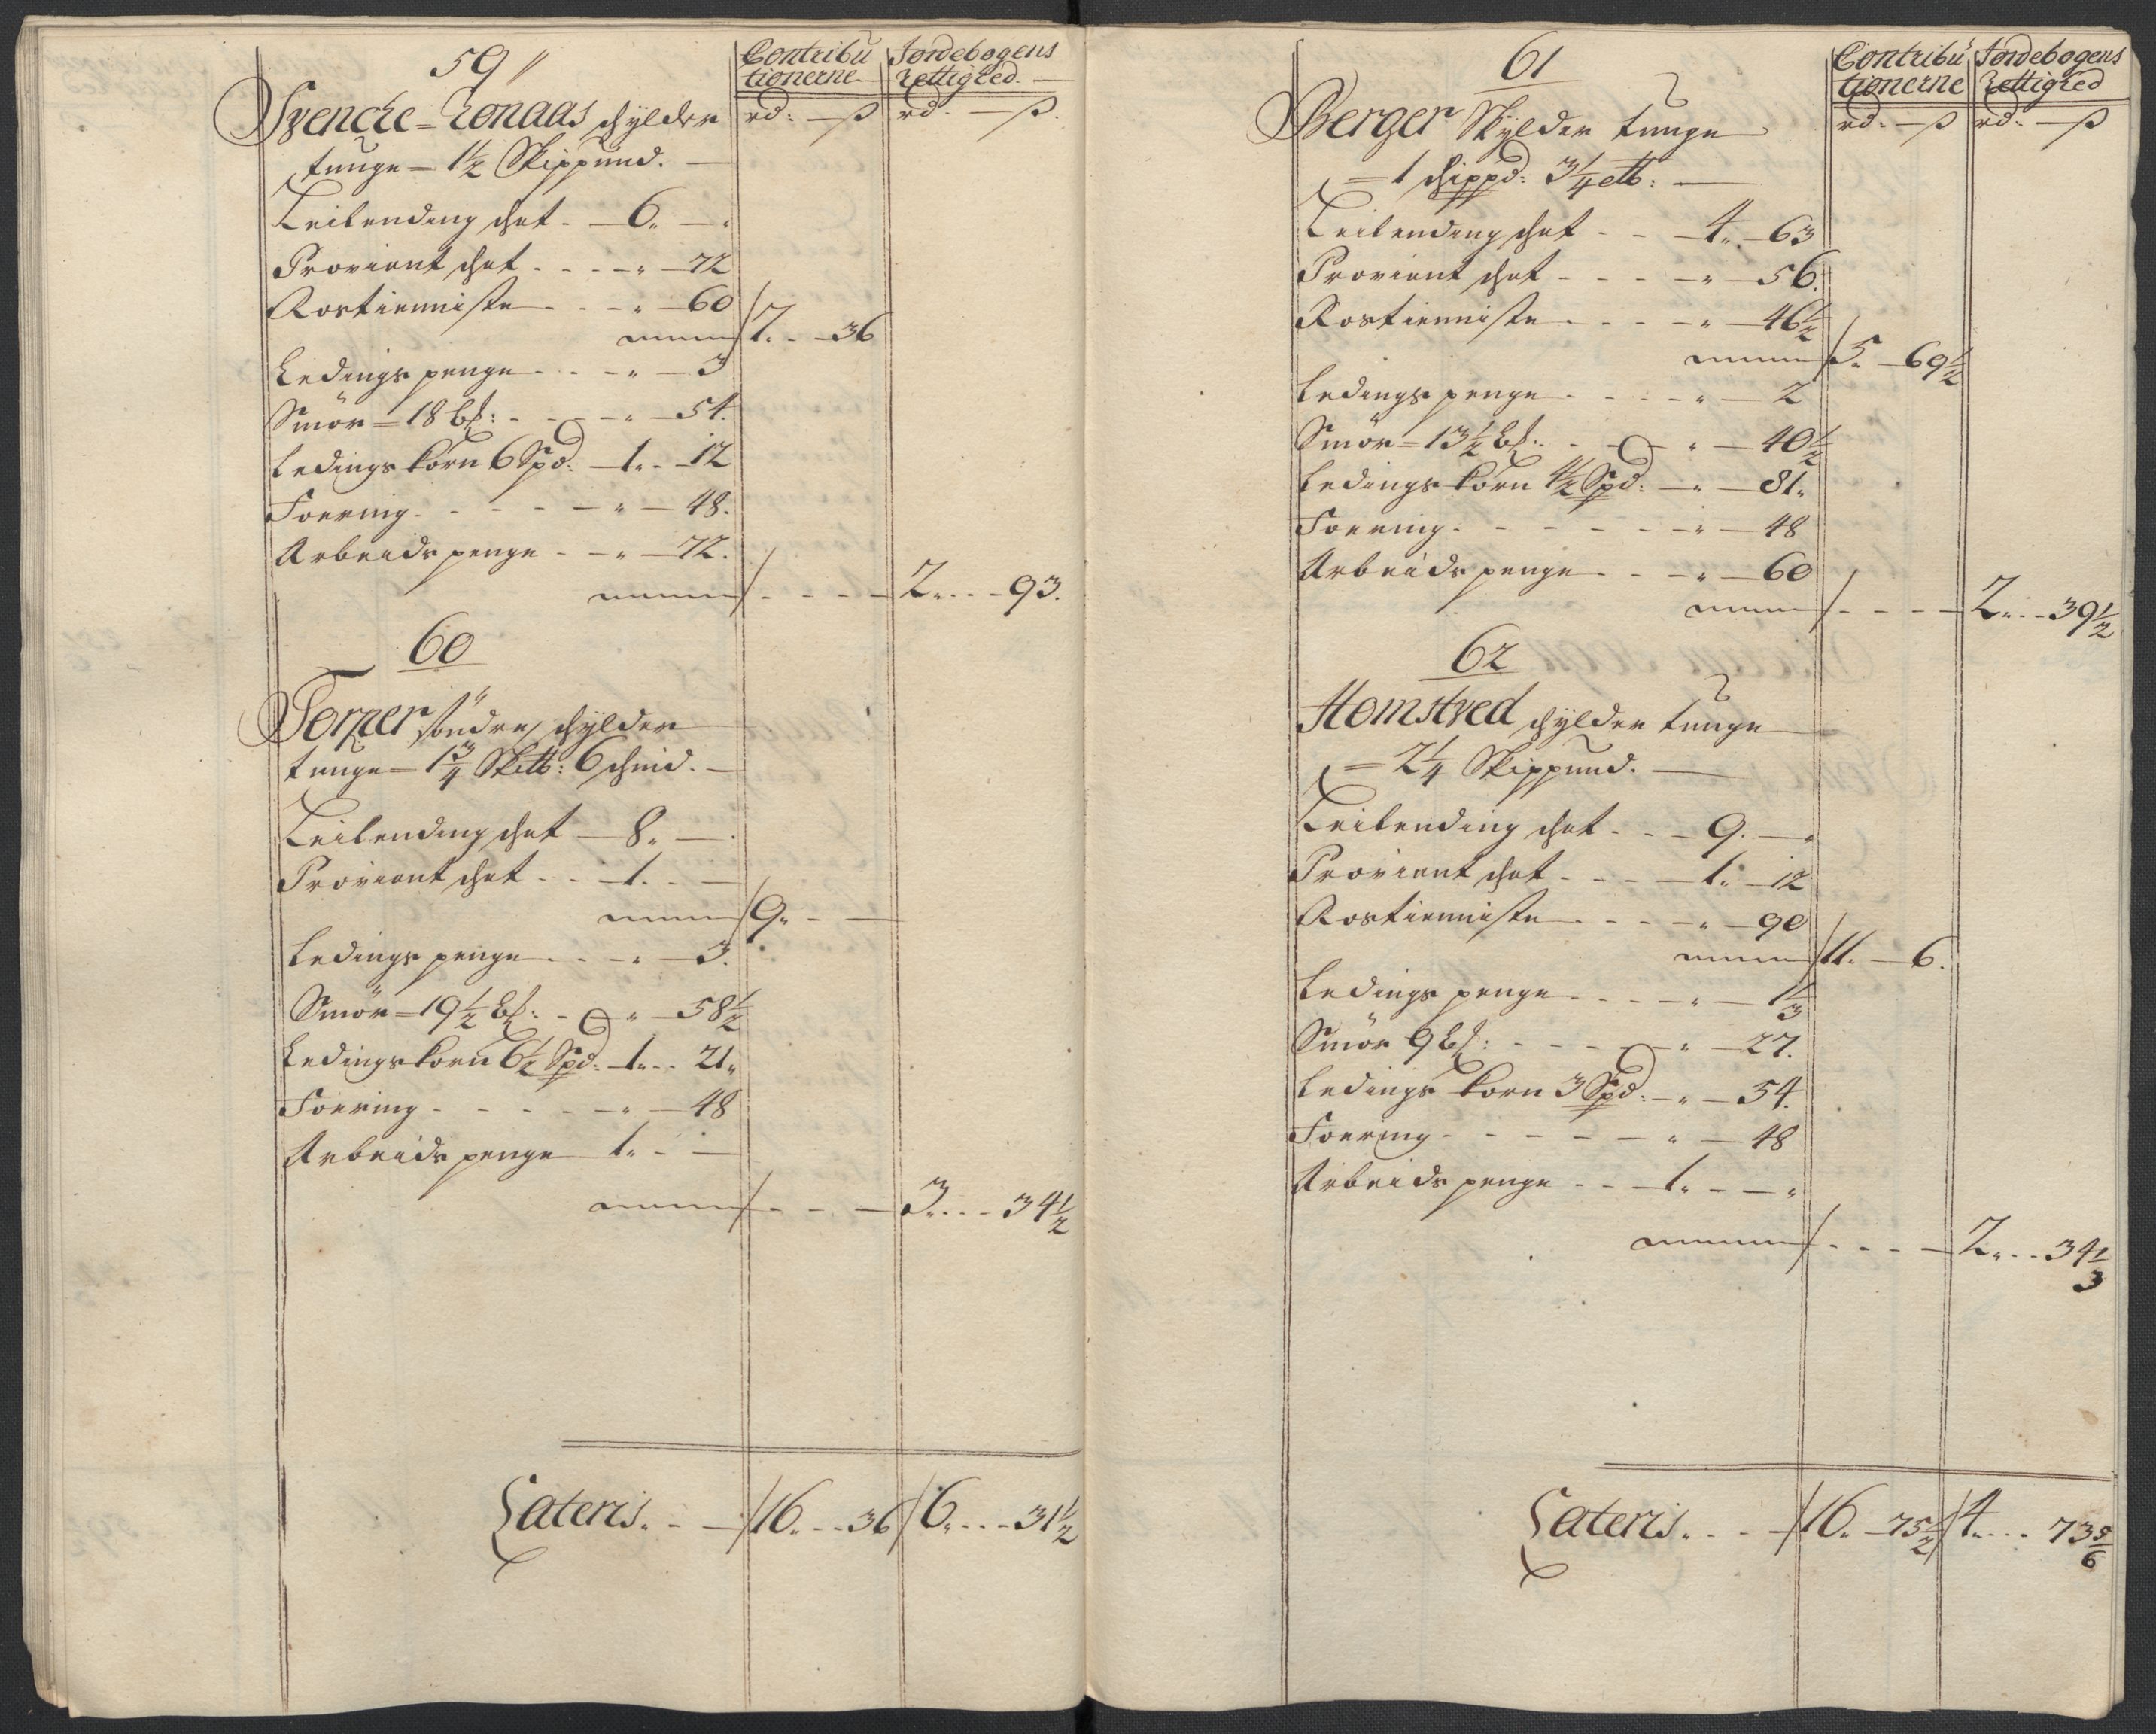 59 //
Contribu Jordebogens
tionerne Rettighed.
rd: — ß rd. — ß.
Svencke=Rønaas schylder
tunge — 1½ Skippund. —
Leilending schat. — 6. — .
Proviant schat. . . . „ — 72
Rostienniste . . . „ — 60
7. . — 36
Ledings penge . . . „ — 3
Smör — 18 b: . . . „ — 54.
Ledings korn 6 Spd: — 1. . 12
Foering . . . . „ — 48.
Arbeids penge . . „ — 72.
. . . . 2. . . . 93.
60
Torper söndre, schylder
tunge — 1¾ Sk℔: 6 schind. —
Leilending schat — 8. — .
Proviant schat . . . 1. . —
9. . —
Ledings penge . . . „ — 3.
Smör — 19½ b: . . „ — 58½
Ledings korn 6½ Spd. . 1. . . 21„
Foering . . . . . „ — 48
Arbeids penge 1. . —
. . . — 3. . . . 34½
Lateris. . — 16. . . . 36 6. . . . 31½
61
Contribu Jordebogens
tionerne Rettighed
rd. — ß rd. — ß
Berger Skylder tunge
= 1 schippd: 3¼ ℔: —
Leilending schat . . . 4. . 63
Proviant schat . . . . „ — 56.
Rostienniste . . . . „ — 46½
5. — 69½
Ledings penge . . . . „ — 2
Smör — 13½ b. . . „ — 40½
Ledings korn 4½ Spd: — „ — 81„
Foering . . . . . . „ — 48
Arbeids penge . . . „ — 60
. . . . 2. . . 39½
62
Homstved schylder tunge
= 2¼ Skippund. —
Leilending schat . . . 9. — „
Proviant schat . . . . 1. — 12
Rostienniste . . . . „ — 90
11. — 6.
Ledings penge . . . . „ — 1⅓
Smör 9 b: . . . . „ — 27.
Ledings korn 3 Spd: — „ — 54.
Foering . . . . . „ — 48
Arbeids penge . . . 1. . — „
. . . — 2. . . 34⅓
Lateris. . . . 16. — 75½ 4. . . . 73⅚